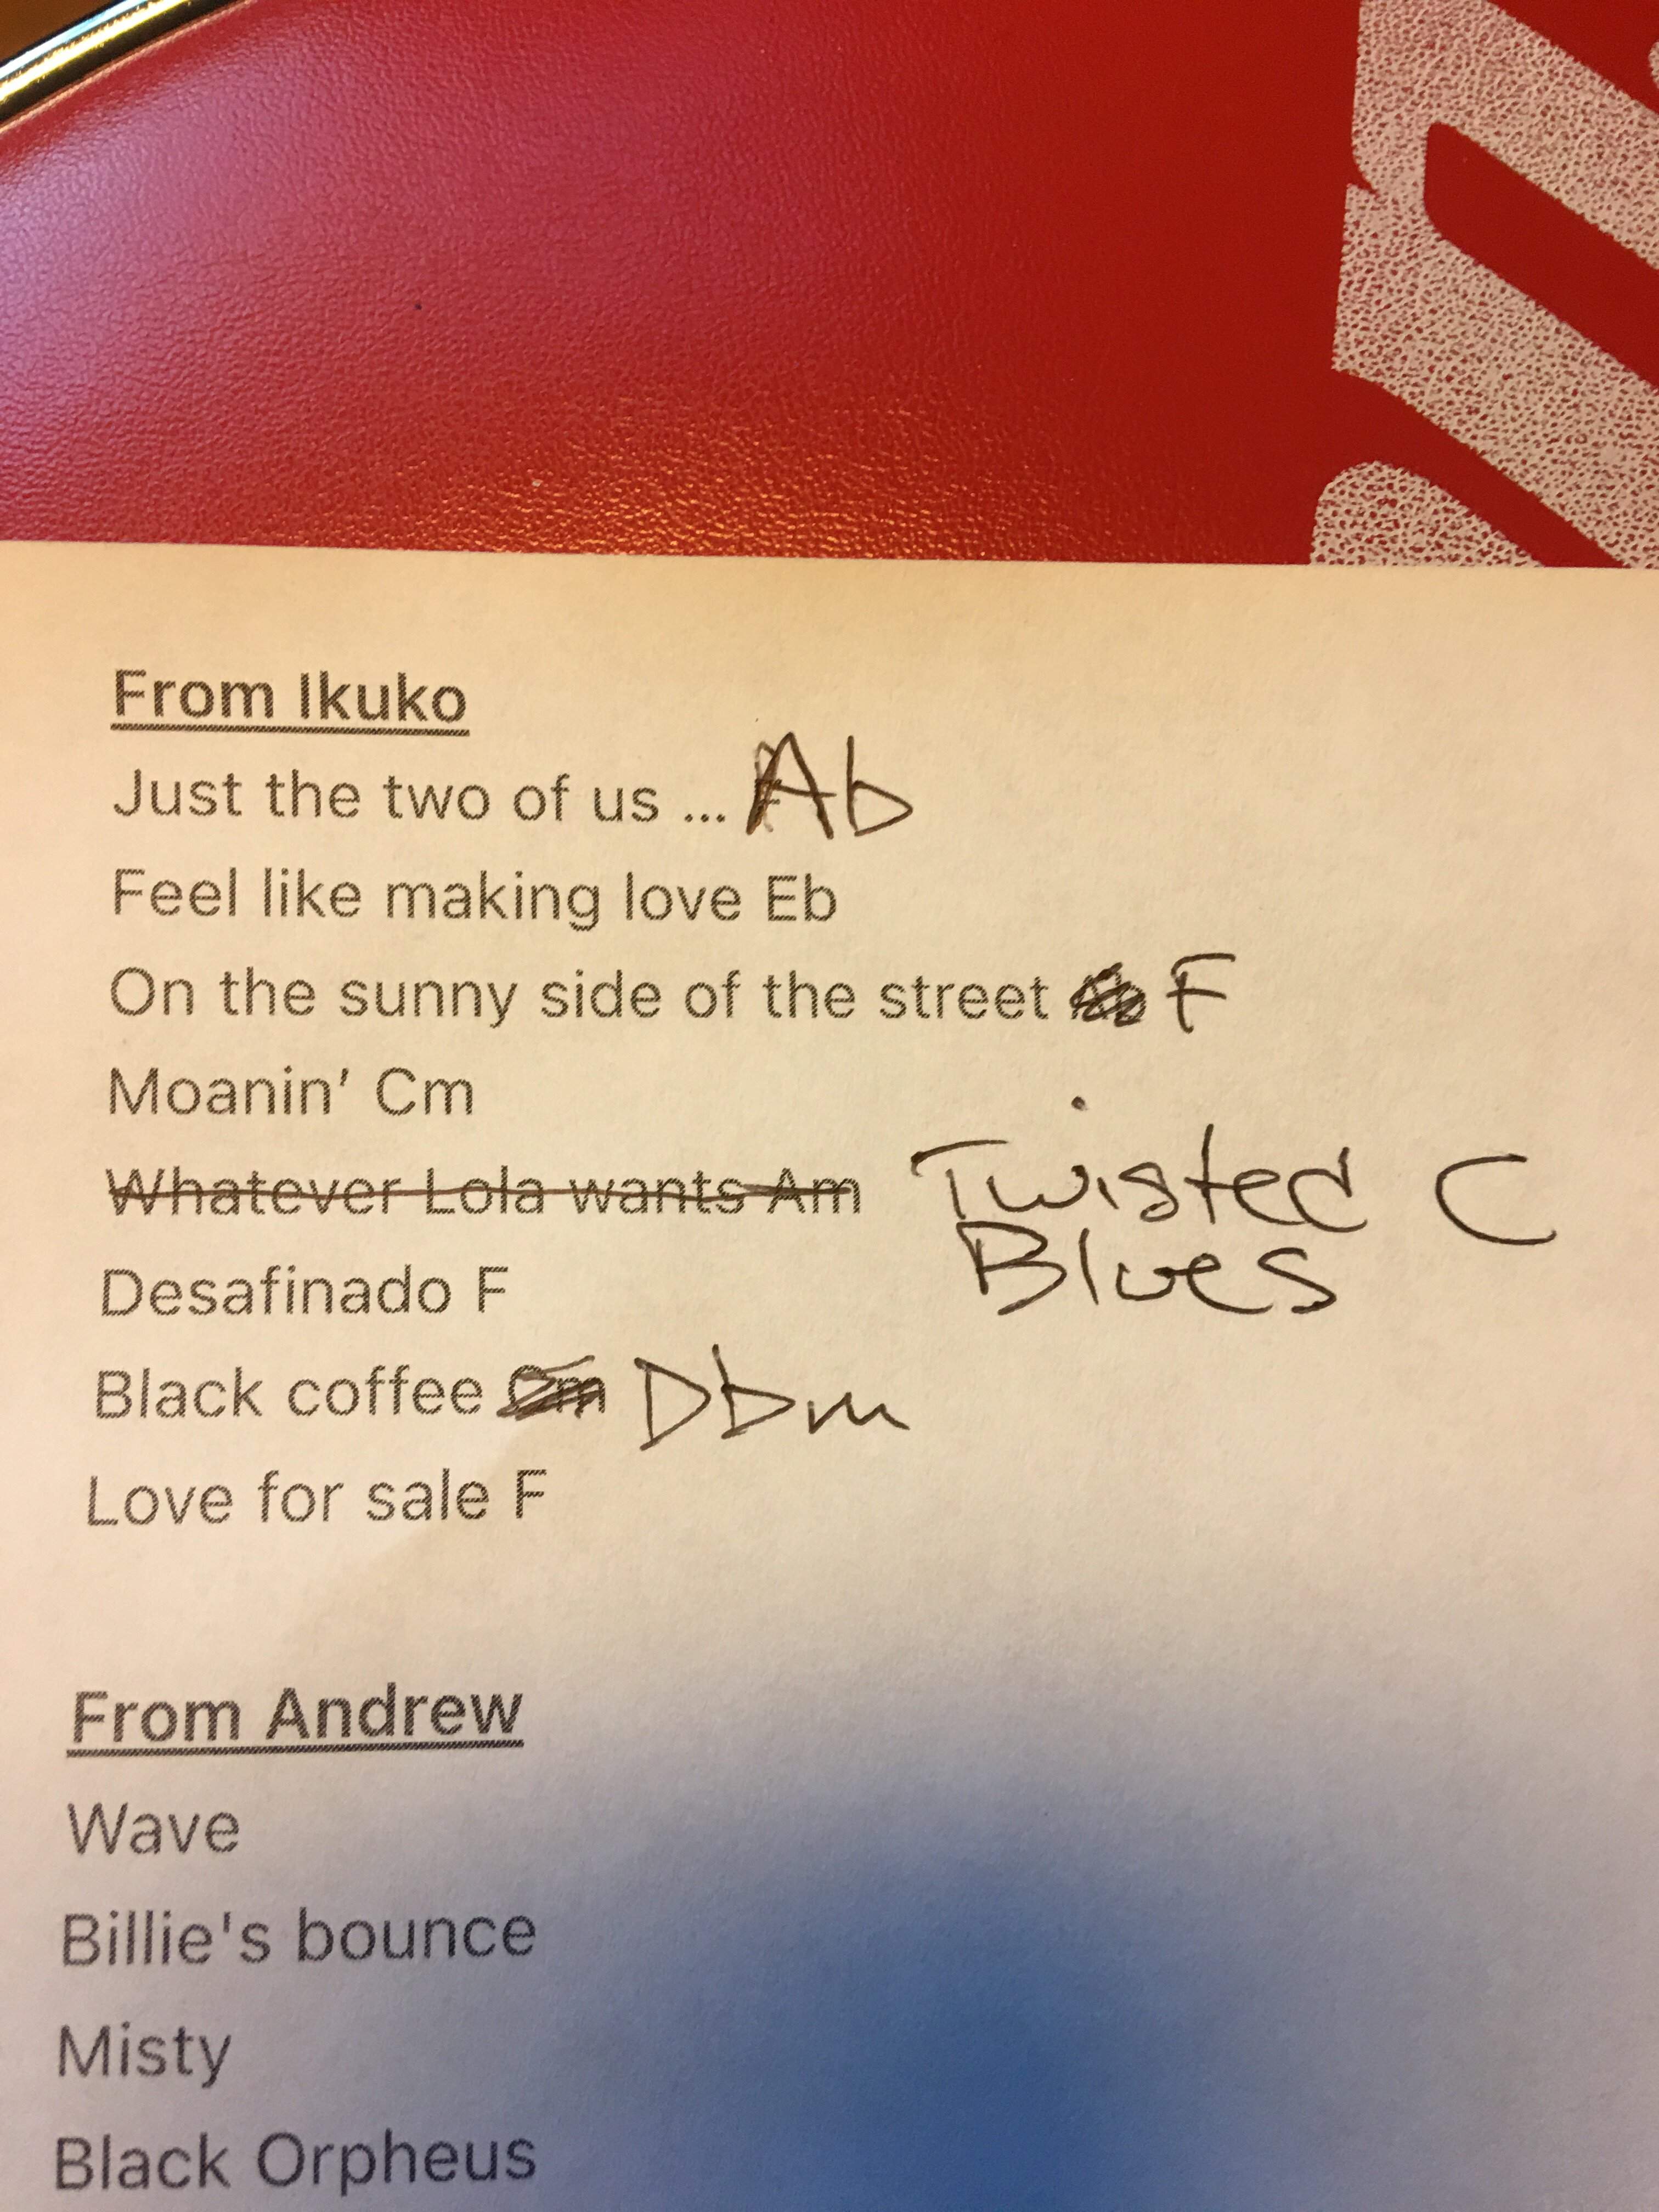 From Ikuko
Just the two of us ... Ab
Feel like making love Eb
On the sunny side of the street F
Moanin' Cm
Whatever Lola wants Am Twisted C
Blues
Desafinado F
Black coffee Cm Dbm
Love for sale F
From Andrew
Wave
Billie's bounce
Misty
Black Orpheus